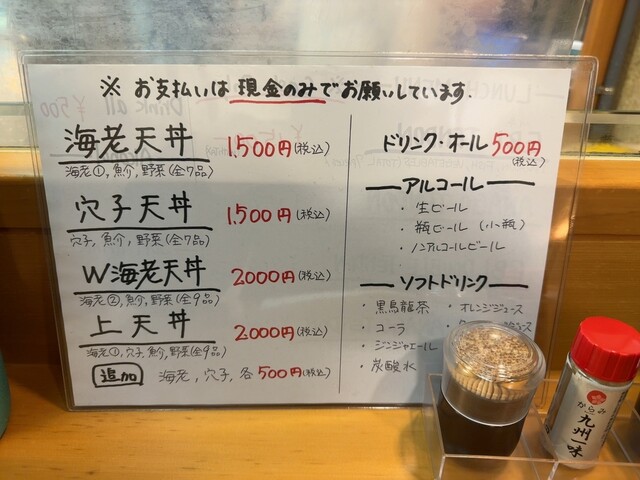 ※ お支払いは現金のみでお願いしています.
海老天丼 1,500円(税込)
海老①,魚介,野菜(全7品)
穴子天丼 1,500円(税込)
穴子,魚介,野菜(全7品)
W海老天丼 2000円(税込)
海老②,魚介,野菜(全9品)
上天丼 2000円(税込)
海老①,穴子,魚介,野菜(全9品)
追加 海老,穴子,各500円(税込)
ドリンク・オール 500円
(税込)
アルコール
・生ビール
・瓶ビール (小瓶)
・ノンアルコールビール
ソフトドリンク
・黒烏龍茶 ・オレンジジュース
・コーラ
・ジンジャエール
・炭酸水
からみ
九州一味